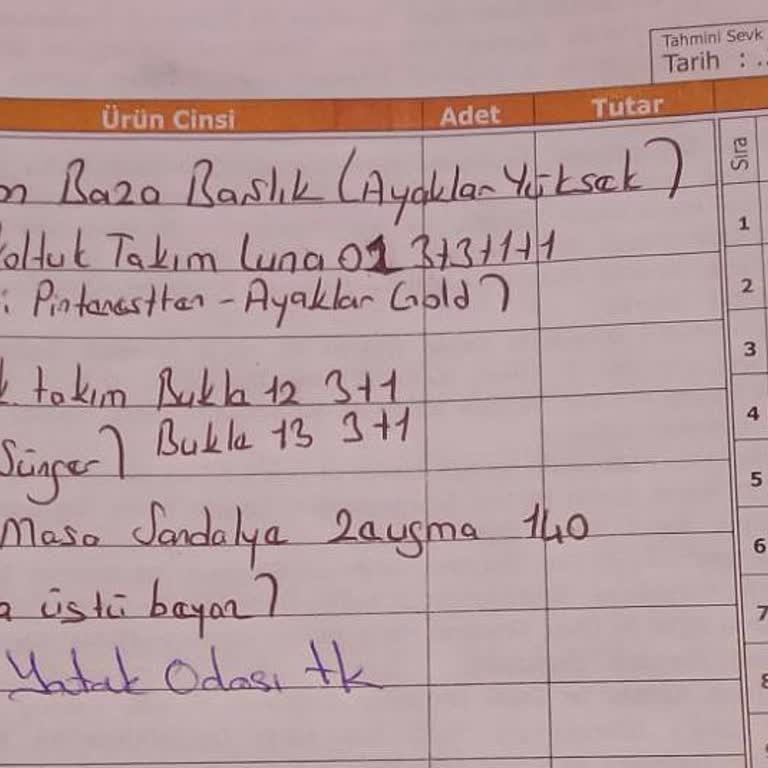 Tahmini Sevk
Tarih : ..
Ürün Cinsi Adet Tutar
Sıra
on Baza Başlık (Ayaklar Yüksek)
1
oltuk Takım Luna 01 3+3+1+1
2
: - Ayaklar Gold)
3
k takım Bukle 12 3+1
4
Sünger) Bukle 13 3+1
5
Masa Sandalye 140
6
a üstü beyaz)
7
Yatak Odası tk
8